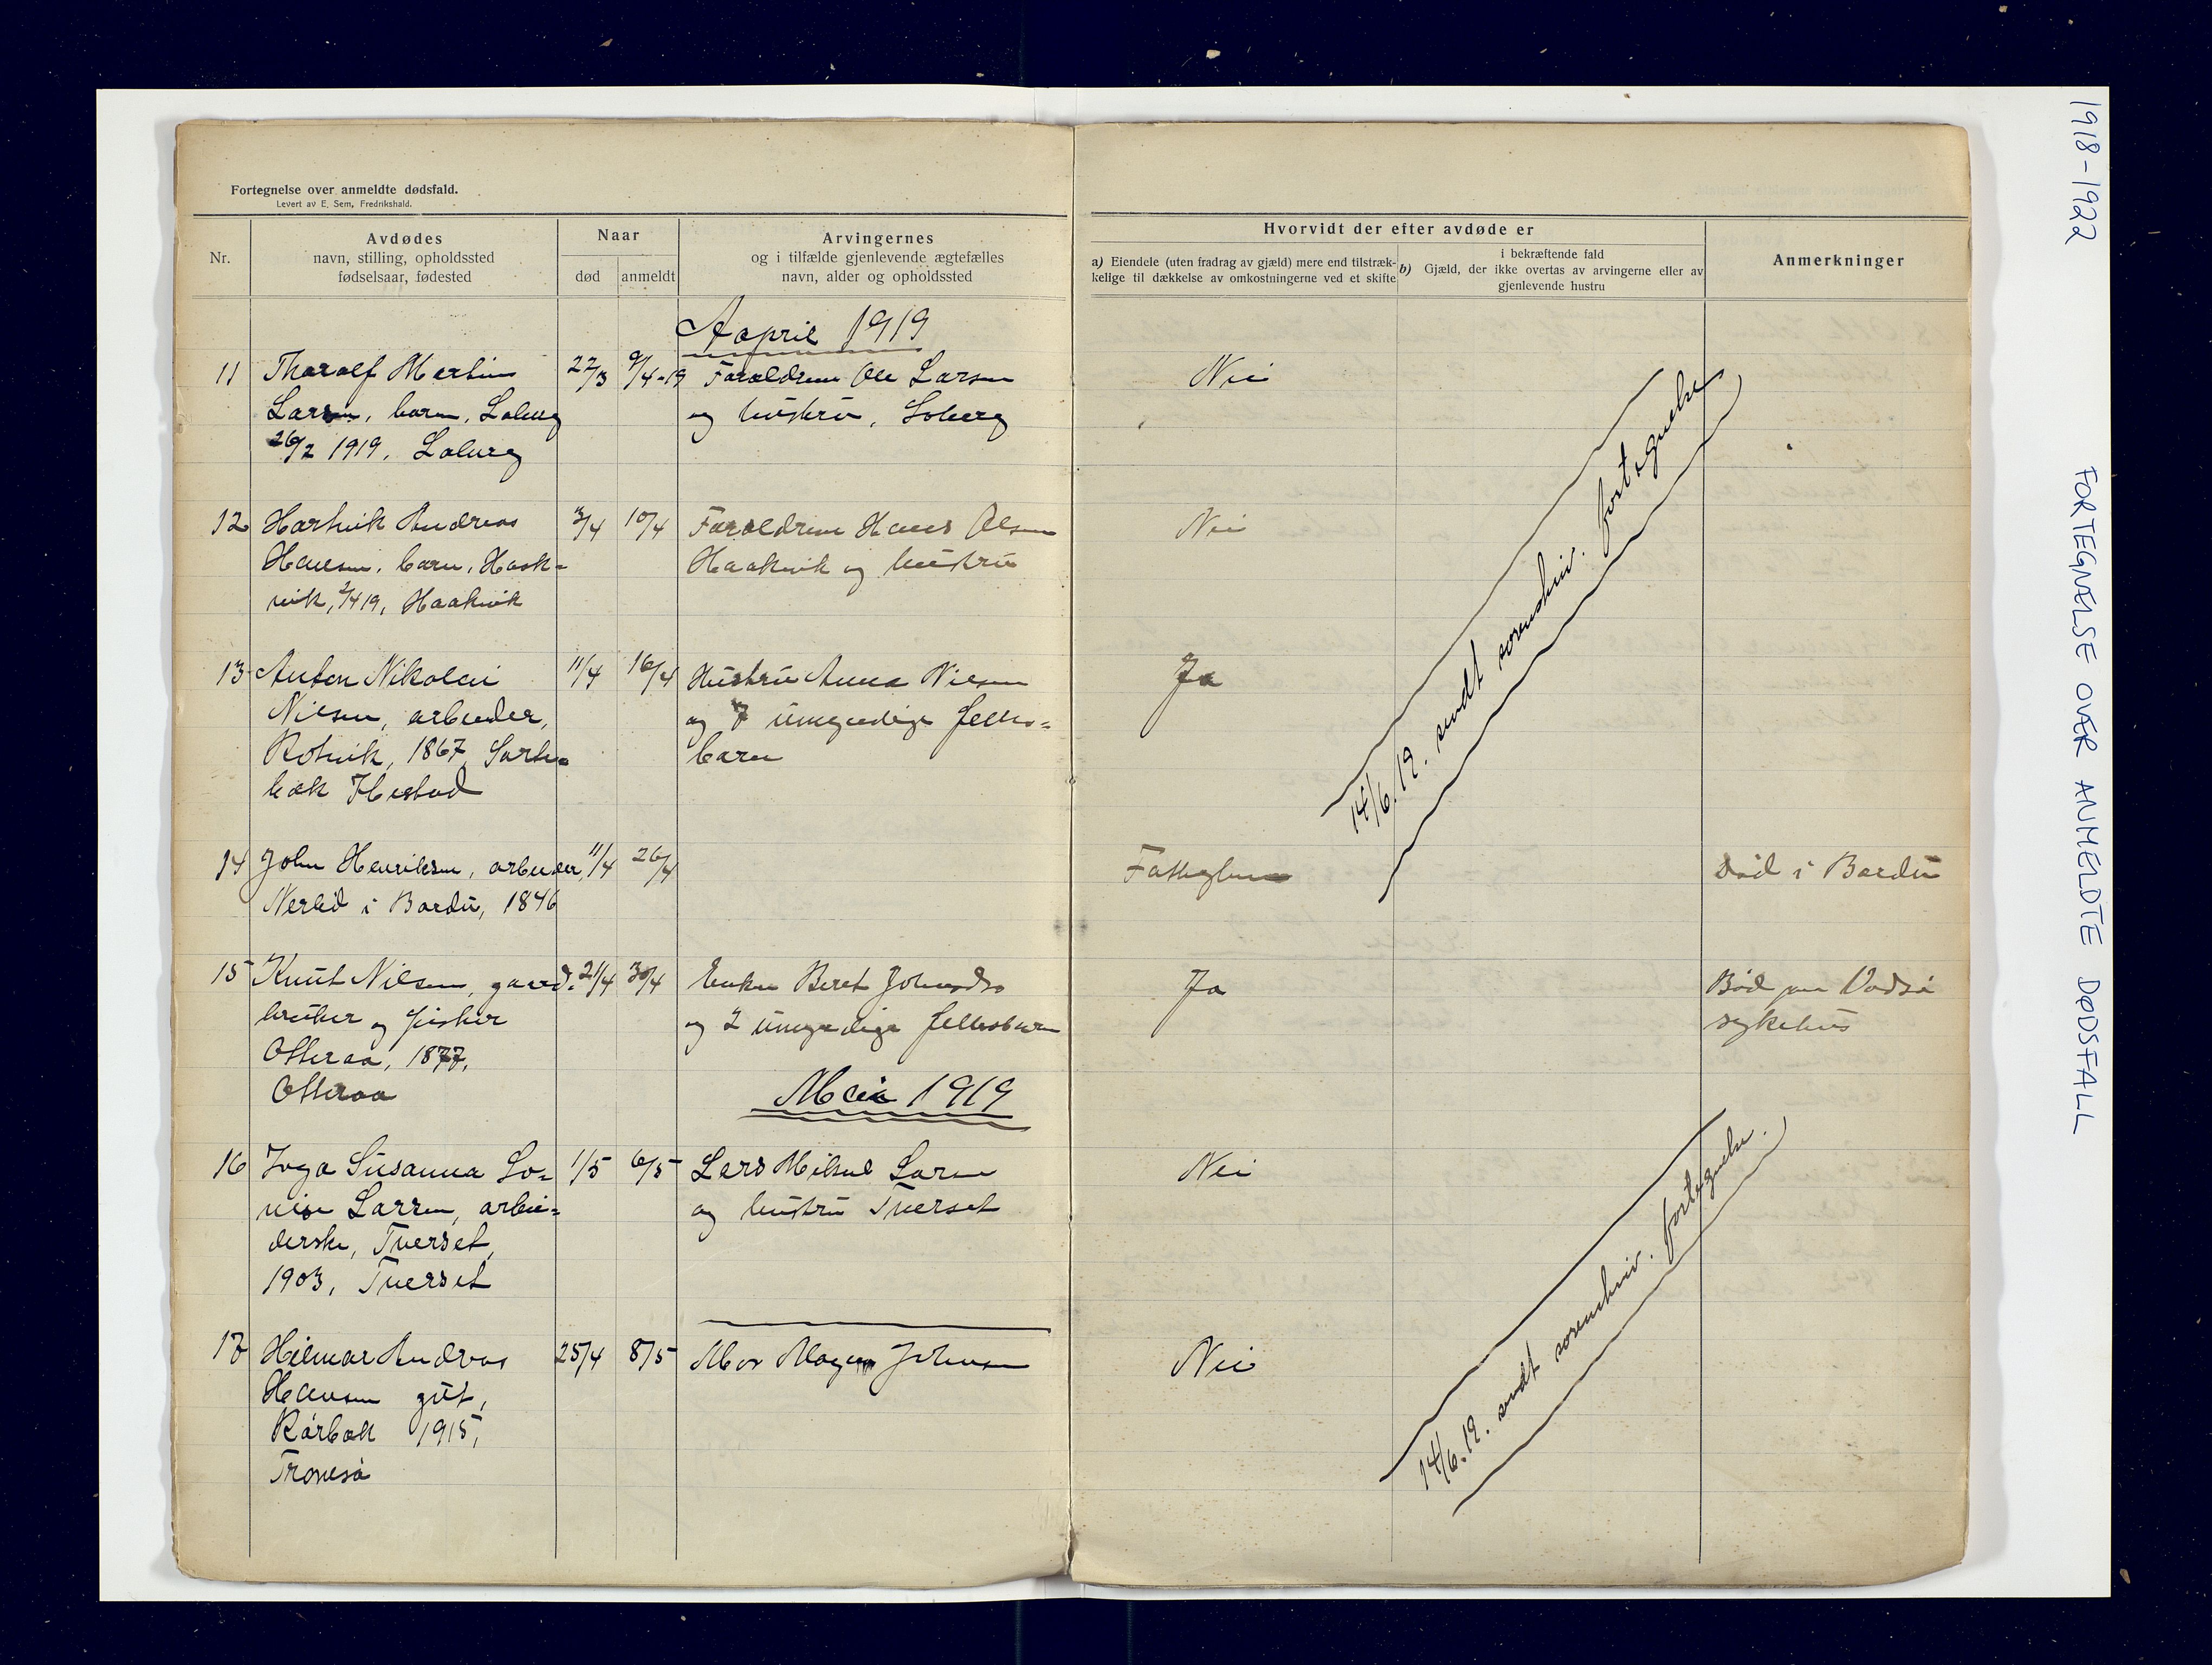 Fortegnelse over anmeldte dødsfald.
Levert av E. Sem, Fredrikshald.
Nr.
Avdødes
navn, stilling, opholdssted
fødselsaar, fødested
Naar
død
anmeldt
Arvingernes
og i tilfælde gjenlevende ægtefælles
navn, alder og opholdssted
Hvorvidt der efter avdøde er
a) Eiendele (uten fradrag av gjæld) mere end tilstræk-
kelige til dækkelse av omkostningerne ved et skifte
i bekræftende fald
b) Gjæld, der ikke overtas av arvingerne eller av
gjenlevende hustru
Anmerkninger
Aapril 1919
11 Tharalf Martin 22/3 9/4-19 Forældrene Ole Larsen Nei
Larsen, barn, Loberg og hustru, Loberg
26/2 1919, Loberg
12 Hartvik Andreas 3/4 10/4 Forældrene Hans Olsen Nei
Hansen, barn, Haak=
vik, 2/4 19, Haakvik
Haakvik og hustru
13 Anton Nikolai 11/4 16/4 Hustru Anna Nilsen Ja
Nilsen, arbeider, og 7 umyndige felles=
Rotvik, 1867, barn
bak Ibestad
14/6.19. sendt sorenskriv. fortegnelse
14 John Henriksen, arbeider, 11/4 26/4 Fattiglem Død i Bardu
Nerlid i Bardu, 1846
15 Knut Nilsen, gaard= 21/4 30/4 Enke Beret Ja
bruker og fisker og 2 umyndige fellesbarn
Otteraa, 1877,
Otteraa
paa Vadsø
sykehus
Mai 1919
16 Inga Susanna Lo= 1/5 6/5 Lars Mikal Larsen Nei
vise Larsen, arbei= og hustru Tverset
derske, Tverset,
1903, Tverset
17 Hilmar Andreas 25/4 8/5 Mor Johnsen Nei
Hansen gut,
Rørbak 1915,
Tromsø
14/6.19. sendt sorenskriv. fortegnelse.
1918-1922 FORTEGNELSE OVER ANMELDTE DØDSFALL